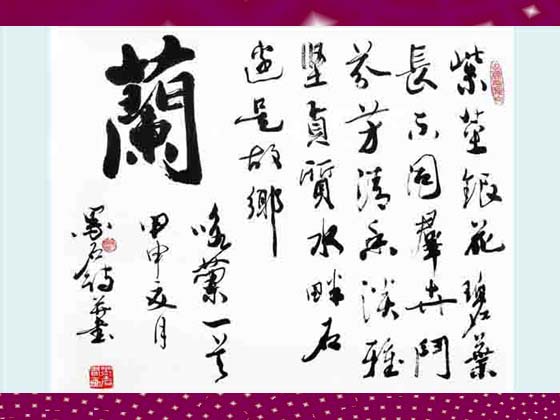 紫莖銀花碧葉
長不同羣卉鬥
芬芳清香淡雅
堅貞質水畔石
邊是故鄉
蘭
咏蘭一首
甲申月
石詩並書